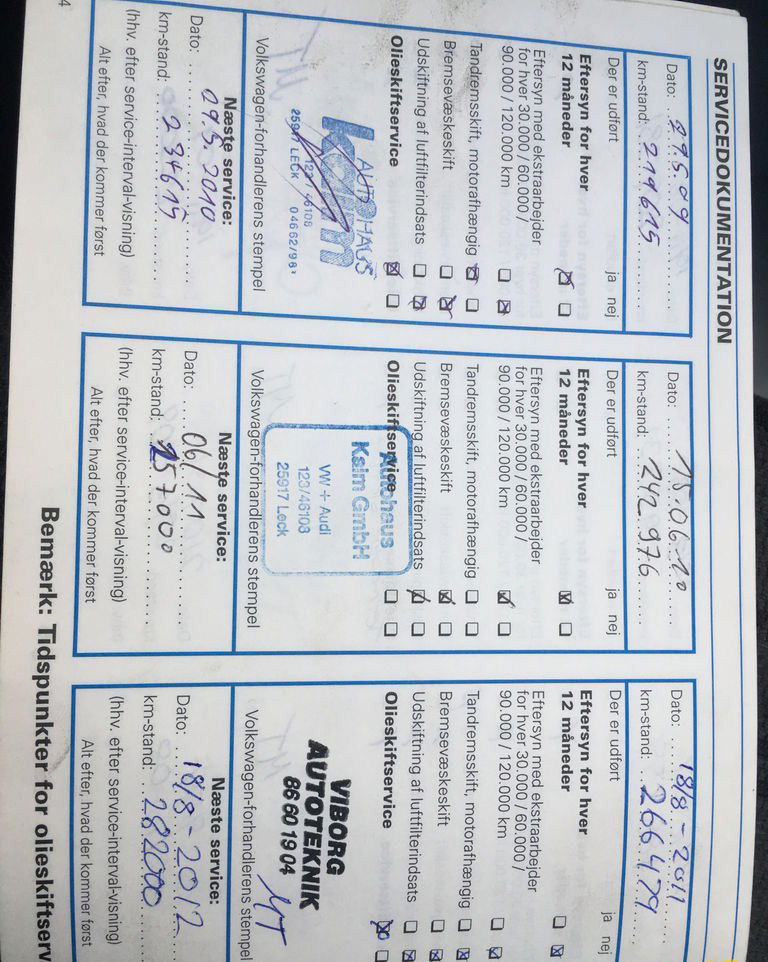 SERVICEDOKUMENTATION
Dato: 29.5.09
km-stand: 219615
Der er udført ja nej
Eftersyn for hver
12 måneder
Eftersyn med ekstraarbejder
for hver 30.000 / 60.000 /
90.000 / 120.000 km
Tandremsskift, motorafhængig
Bremsevæskeskift
Udskiftning af luftfilterindsats
Olieskiftservice
AUTOHAUS
25917 LECK 04662/981
Volkswagen-forhandlerens stempel
Næste service:
Dato: 09.5.2010
km-stand: 234615
(hhv. efter service-interval-visning)
Alt efter, hvad der kommer først
Dato: 15.06.10
km-stand: 242.976
Der er udført ja nej
Eftersyn for hver
12 måneder
Eftersyn med ekstraarbejder
for hver 30.000 / 60.000 /
90.000 / 120.000 km
Tandremsskift, motorafhængig
Bremsevæskeskift
Udskiftning af luftfilterindsats
Olieskiftservice
Autohaus
GmbH
VW + Audi
123/46108
25917 Leck
Volkswagen-forhandlerens stempel
Næste service:
Dato: 06/11
km-stand: 257000
(hhv. efter service-interval-visning)
Alt efter, hvad der kommer først
Dato: 18/8-2011
km-stand: 266479
Der er udført ja nej
Eftersyn for hver
12 måneder
Eftersyn med ekstraarbejder
for hver 30.000 / 60.000 /
90.000 / 120.000 km
Tandremsskift, motorafhængig
Bremsevæskeskift
Udskiftning af luftfilterindsats
Olieskiftservice
VIBORG
AUTOTEKNIK
86 60 19 04
Volkswagen-forhandlerens stempel
Næste service:
Dato: 18/8-2012
km-stand: 282000
(hhv. efter service-interval-visning)
Alt efter, hvad der kommer først
Bemærk: Tidspunkter for olieskiftserv
4